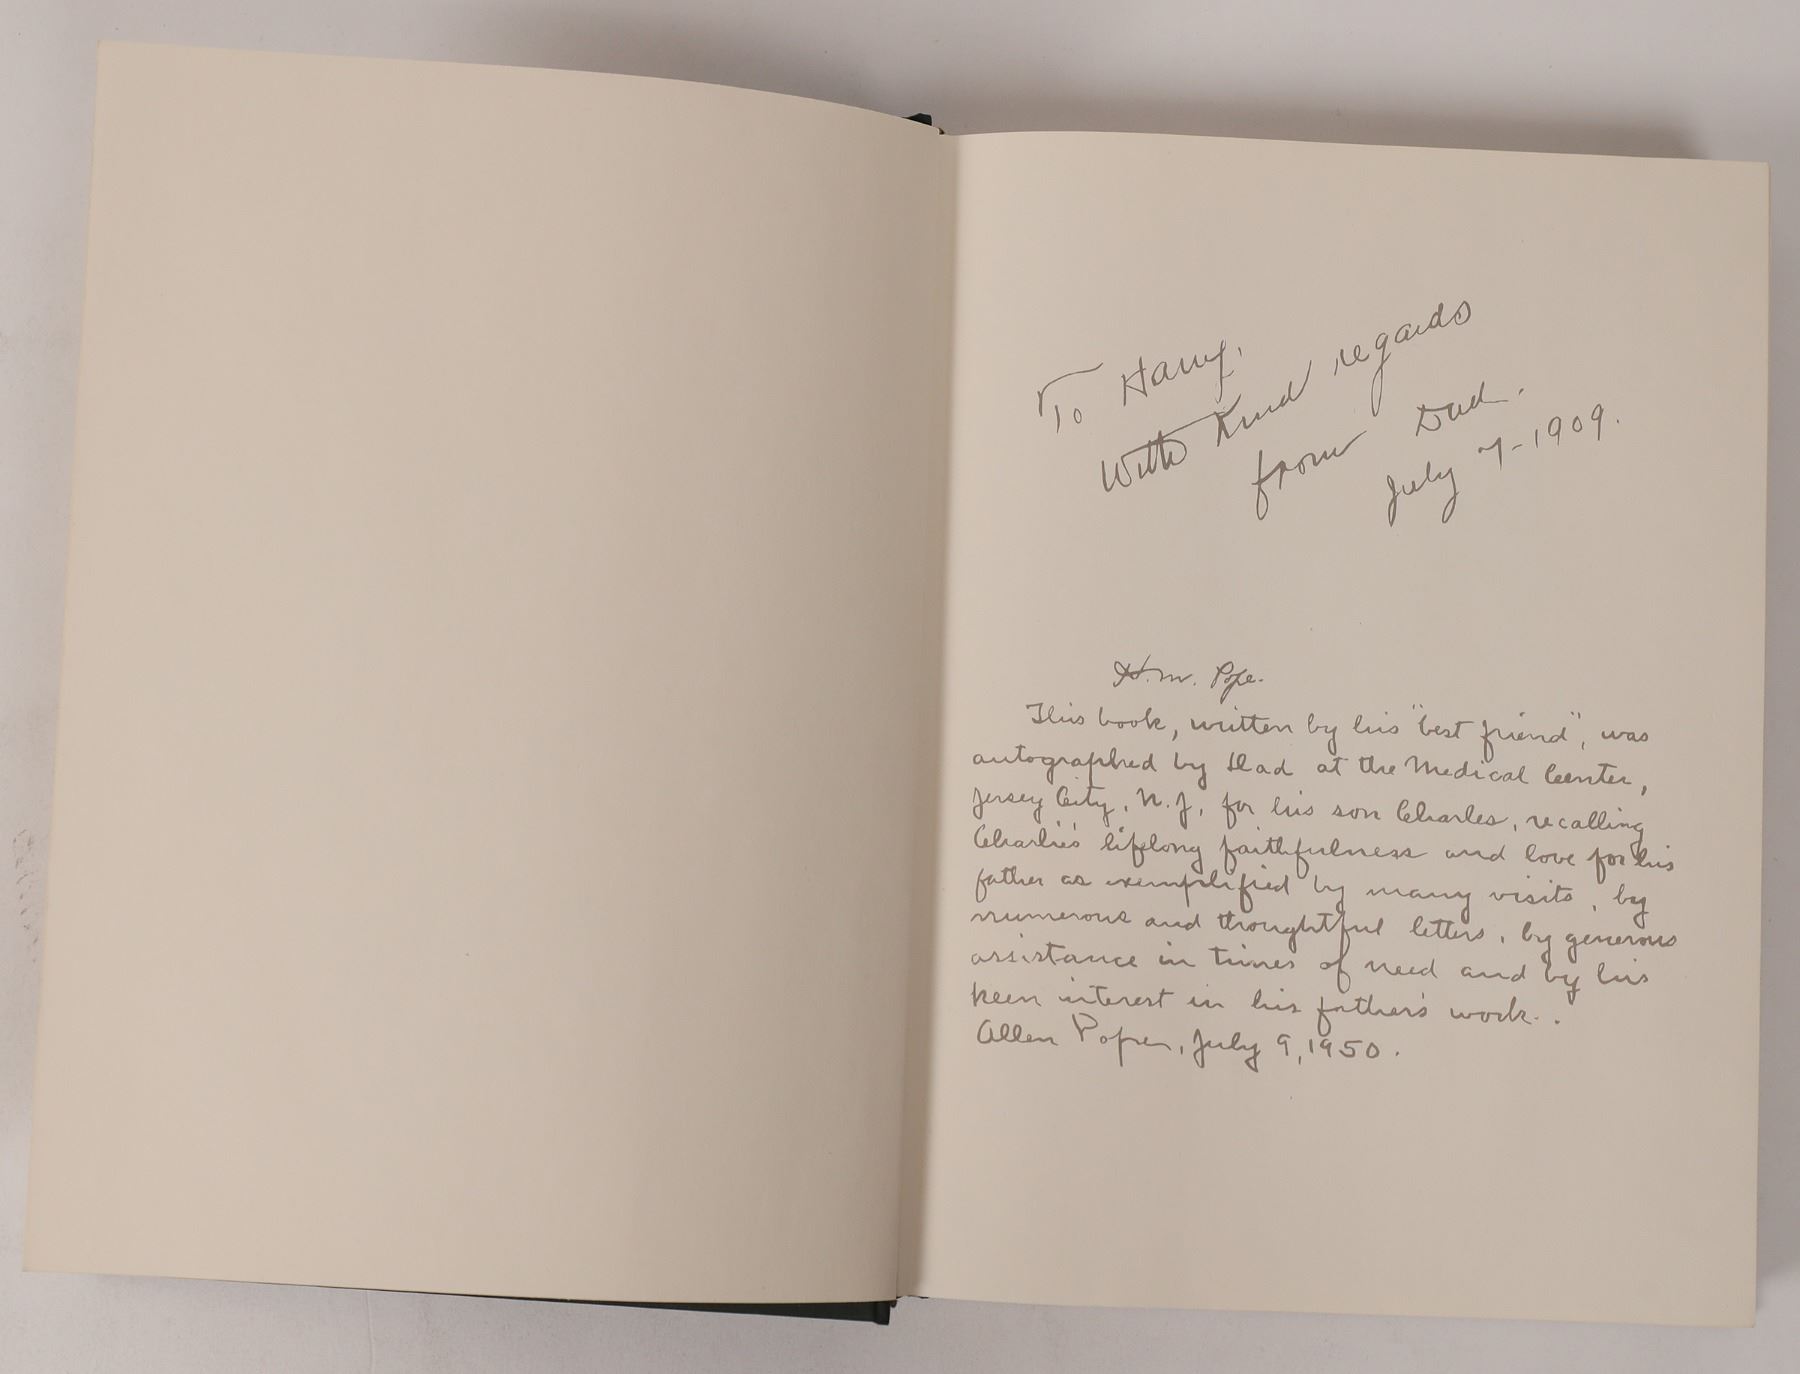 To Harry,
With Kind regards
from Dad.
July 7-1909.
H. M. Pope.
This book, written by his "best friend", was
autographed by Dad at the Medical Center,
Jersey City, N.J, for his son Charles, recalling
Charlie's lifelong faithfulness and love for his
father as exemplified by many visits, by
numerous and thoughtful letters, by generous
assistance in times of need and by his
keen interest in his father's work.
Allen Pope, July 9, 1950.